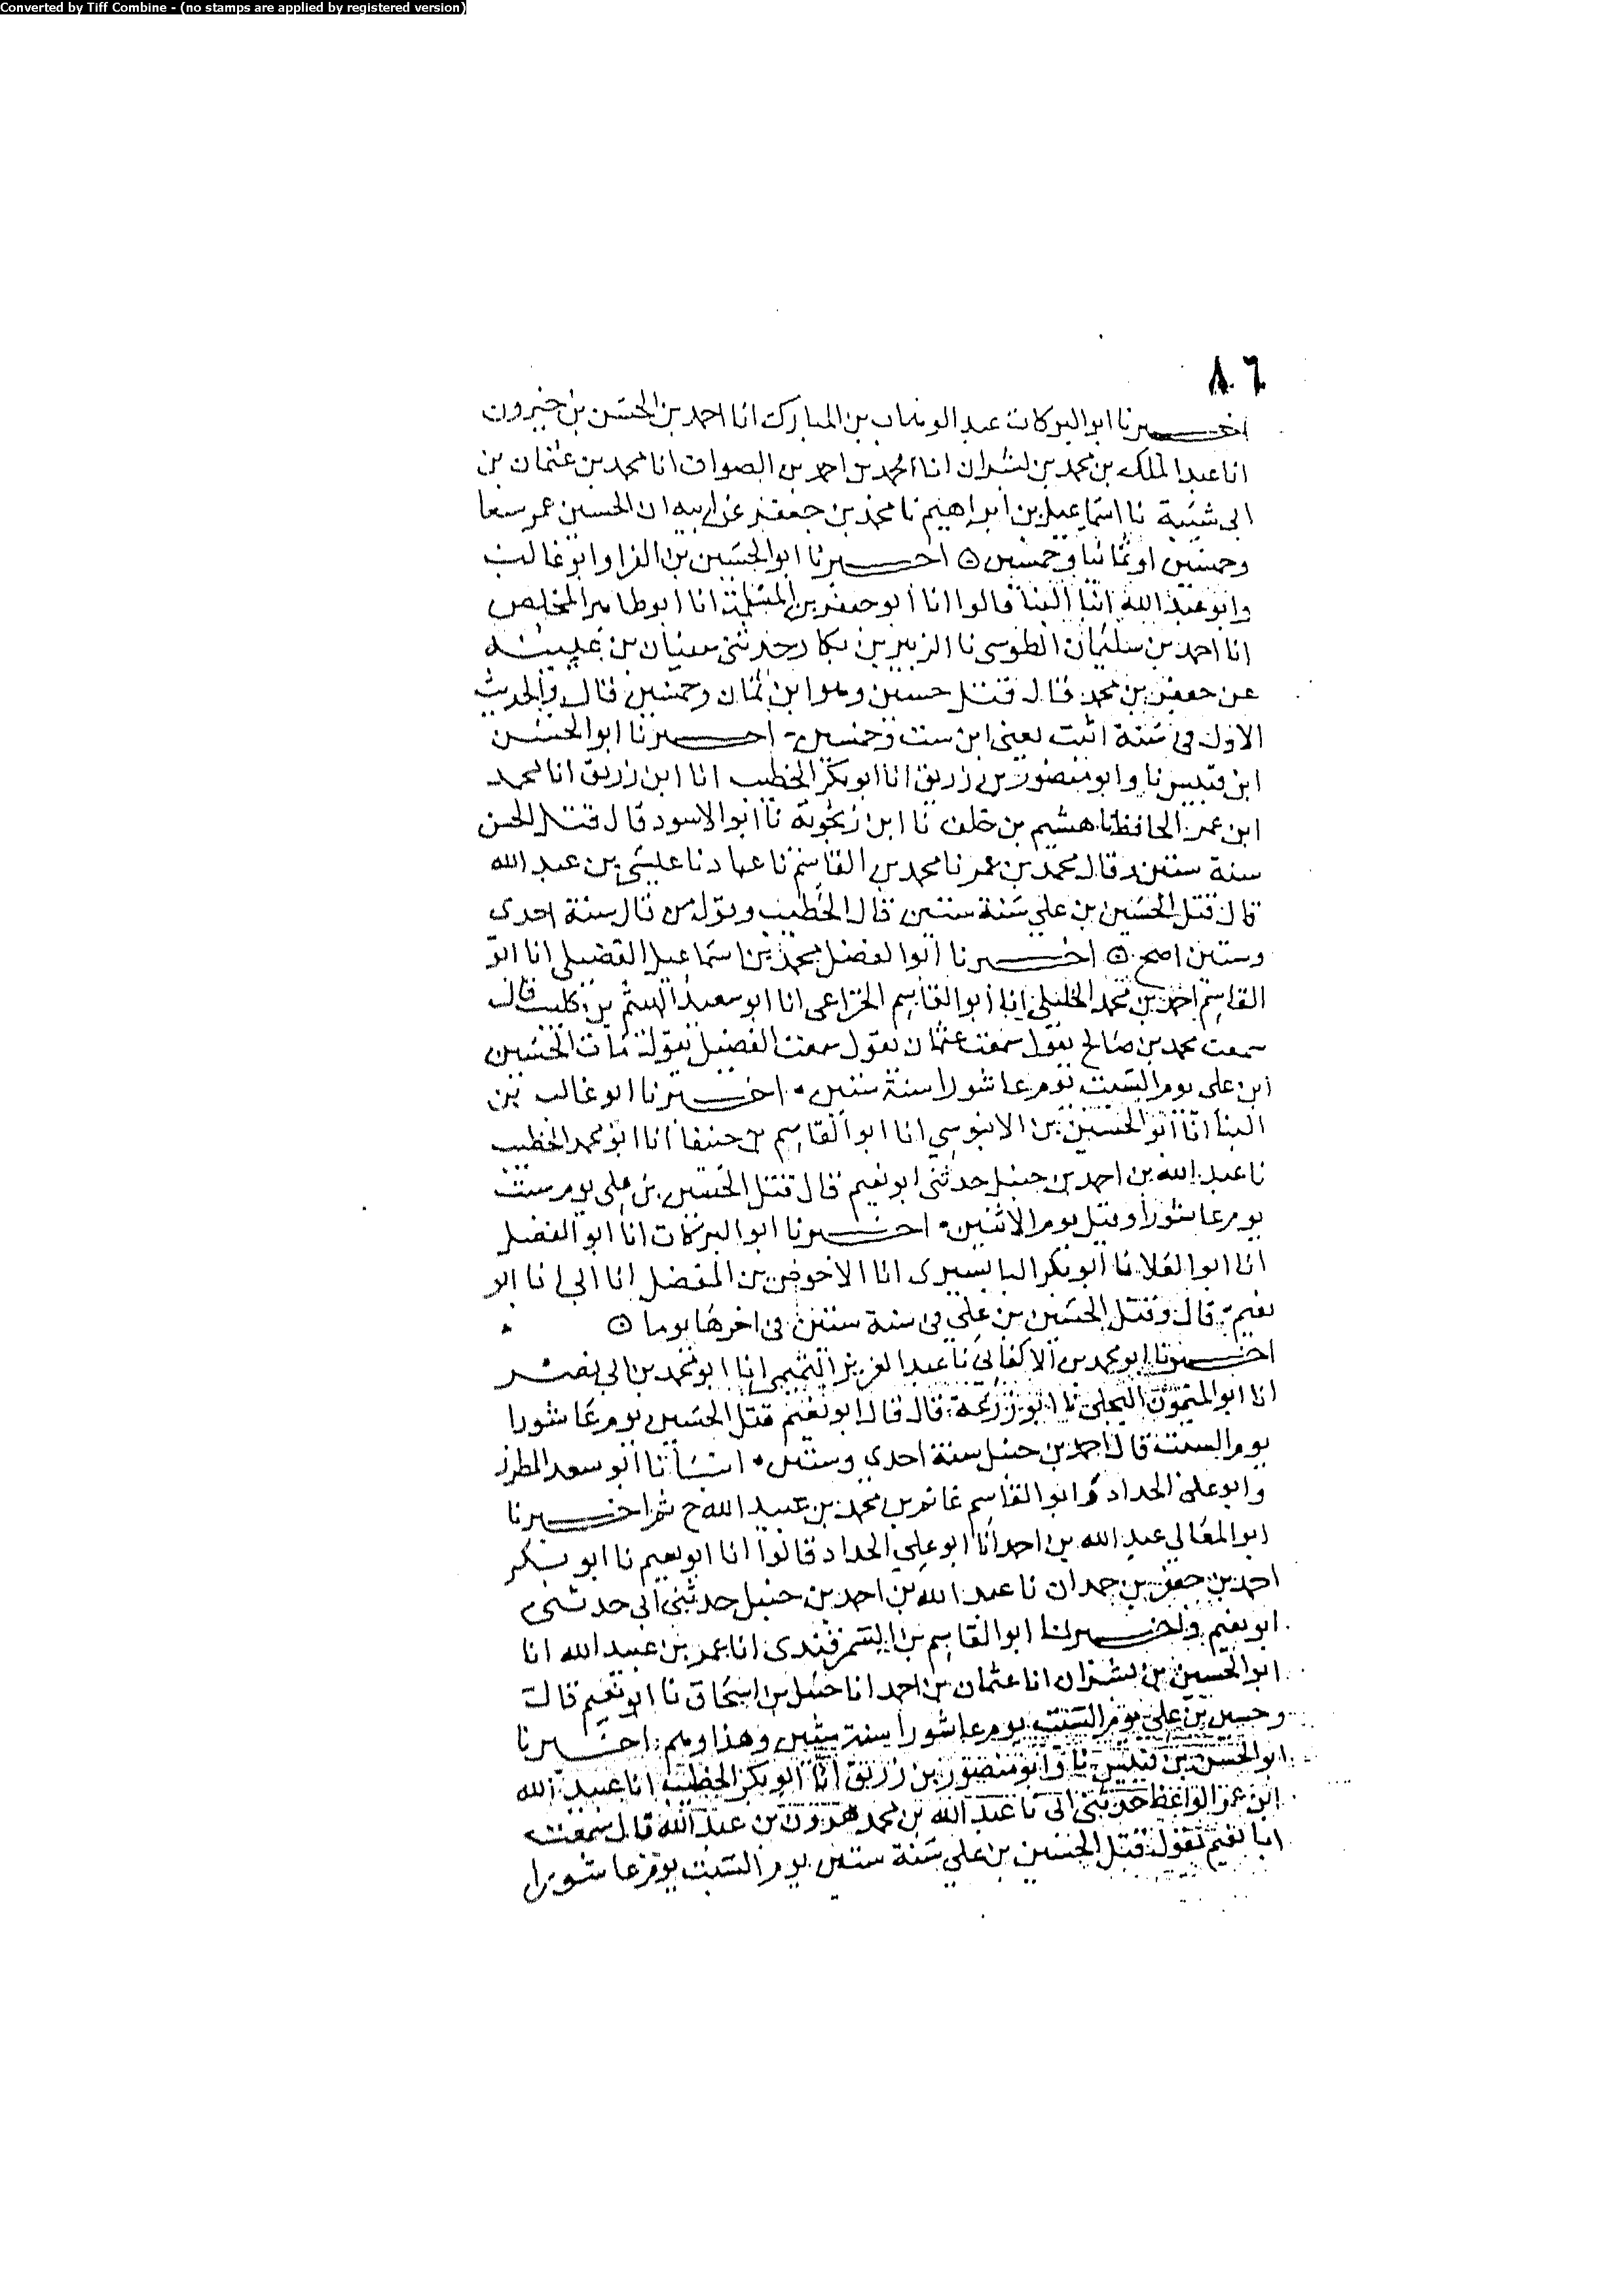 Converted by Tiff Combine - (no stamps are applied by registered version)
٨٠٦
اخبرنا ابو البركات عبد الوهاب بن المبارك انا احمد بن الحسن بن خيرون
انا عبد الملك بن محمد بن بشران انا محمد بن احمد بن الصواف انا محمد بن عثمان بن
ابى شيبة نا اسماعيل بن ابراهيم نا محمد بن جعفر عن ابيه ان الحسين عمر سبعا
وخمسين او ثمانيا وخمسين ۞ اخبرنا ابو الحسين بن الفرا وابو غالب
وابو عبد الله ابنا البنا قالوا انا ابو جعفر بن المسلمة انا ابو طاهر المخلص
انا احمد بن سليمان الطوسى نا الزبير بن بكار وحدثنى سفيان بن عيينه
عن جعفر بن محمد قال قتل حسين وهو ابن ثمان وخمسين قال والحديث
الاول فى سنة اثبت يعنى ابن ست وخمسين اخبرنا ابو الحسن
ابن قبيس نا وابو منصور بن زريق انا ابو بكر الخطيب انا ابن زريق انا محمد
ابن عمر الحافظ نا هشيم بن خلف نا ابن زنجوية نا ابو الاسود قال قتل الحسن
سنة ستين وقال محمد بن عمر نا محمد بن القاسم نا عباد نا عيسى بن عبد الله
قال قتل الحسين بن على سنة ستين قال الخطيب وقول من قال سنة احدى
وستين اصح ۞ اخبرنا ابو الفضل محمد بن اسماعيل الفضيلى انا ابو
القاسم احمد بن محمد الخليلى انا ابو القاسم الخزاعى انا ابو سعيد الهيثم بن كليب قال
سمعت محمد بن صالح يقول سمعت عثمان يقول سمعت الفضيل يقول مات الحسين
ابن على يوم السبت يوم عاشورا سنة ستين اخبرنا ابو غالب بن
البنا انا ابو الحسين بن الابنوسي انا ابو القاسم بن حنيفا انا ابو محمد الخطيب
نا عبد الله بن احمد بن حنبل حدثنى ابو نعيم قال قتل الحسين بن على يوم سبت
يوم عاشورا وقيل يوم الاثنين اخبرنا ابو البركات انا ابو الفضل
انا ابو العلا نا ابو بكر البابسيرى انا الاحوص بن المفضل انا ابى انا ابو
نعيم قال وقتل الحسين بن علي فى سنة ستين فى اخرها يوما ۞
اخبرنا ابو محمد بن الاكفانى نا عبد العزيز التميمى انا ابو محمد بن ابى نصر
انا ابو الميمون البجلى نا ابو زرعة قال قال ابو نعيم قتل الحسين يوم عاشورا
يوم السبت قال احمد بن حنبل سنة احدى وستين انبأنا ابو سعد المطرز
وابو على الحداد وابو القاسم غانم بن محمد بن عبيد الله ح ثم اخبرنا
ابو المعالي عبد الله بن احمد انا ابو علي الحداد قالوا انا ابو نعيم نا ابو بكر
احمد بن جعفر بن حمدان نا عبد الله بن احمد بن حنبل حدثنى ابى حدثنى
ابو نعيم واخبرنا ابو القاسم بن السمرقندى انا عمر بن عبيد الله انا
ابو الحسين بن بشران انا عثمان بن احمد انا حنبل بن اسحاق نا ابو نعيم قال
وحسين بن علي يوم السبت يوم عاشورا سنة ستين وهذا وهم اخبرنا
ابو الحسن بن قبيس نا وابو منصور بن زريق انا ابو بكر الخطيب انا عبيد الله
ابن عمر الواعظ حدثنى ابى نا عبد الله بن محمد هرون بن عبد الله قال سمعت
ابا نعيم يقول قتل الحسين بن علي سنة ستين يوم السبت يوم عاشورا